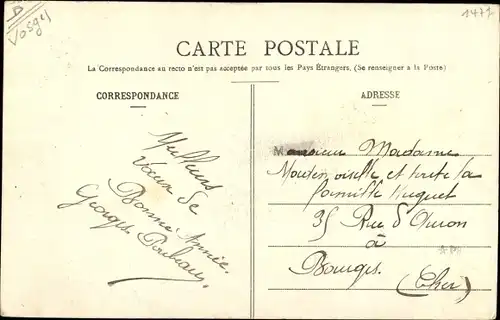 D
Vosges
1477
CARTE POSTALE
La Correspondance au recto n'est pas acceptée par tous les Pays Étrangers. (Se renseigner à la Poste)
CORRESPONDANCE
Meilleurs
Vœux de
Bonne Année.
Georges
ADRESSE
Monsieur Madame
et toute la
famille Huguet
35 Rue d'Auron
à
Bourges.
(Cher)